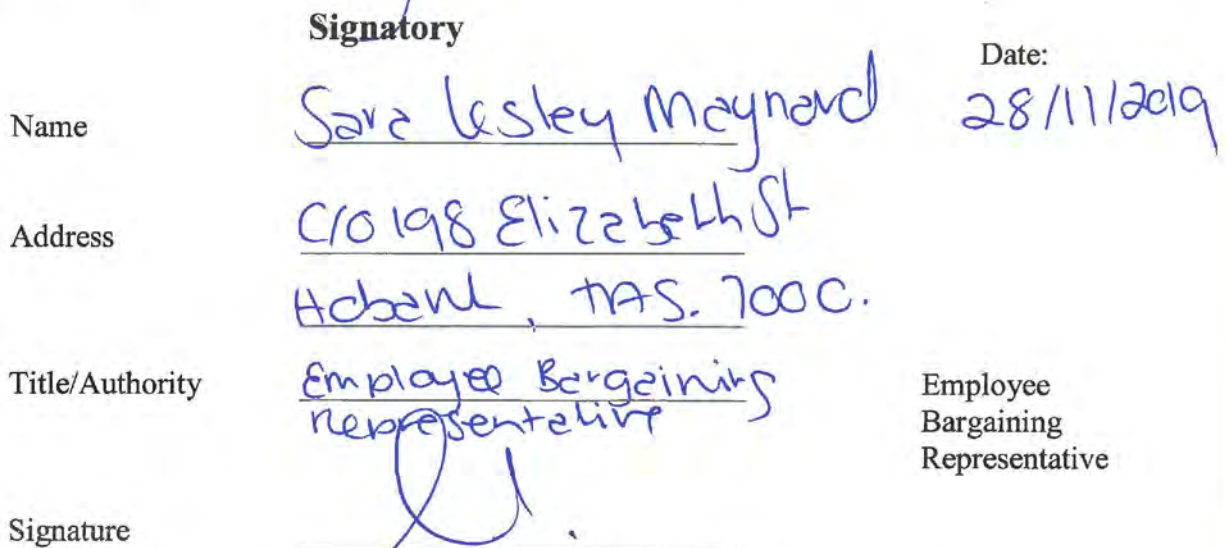 Signatory
Date:
Name Sara Lesley Maynard 28/11/2019
Address C/O 198 Elizabeth St
Hobart, TAS. 7000.
Title/Authority Employee Bargaining Employee
Representative Bargaining
Representative
Signature